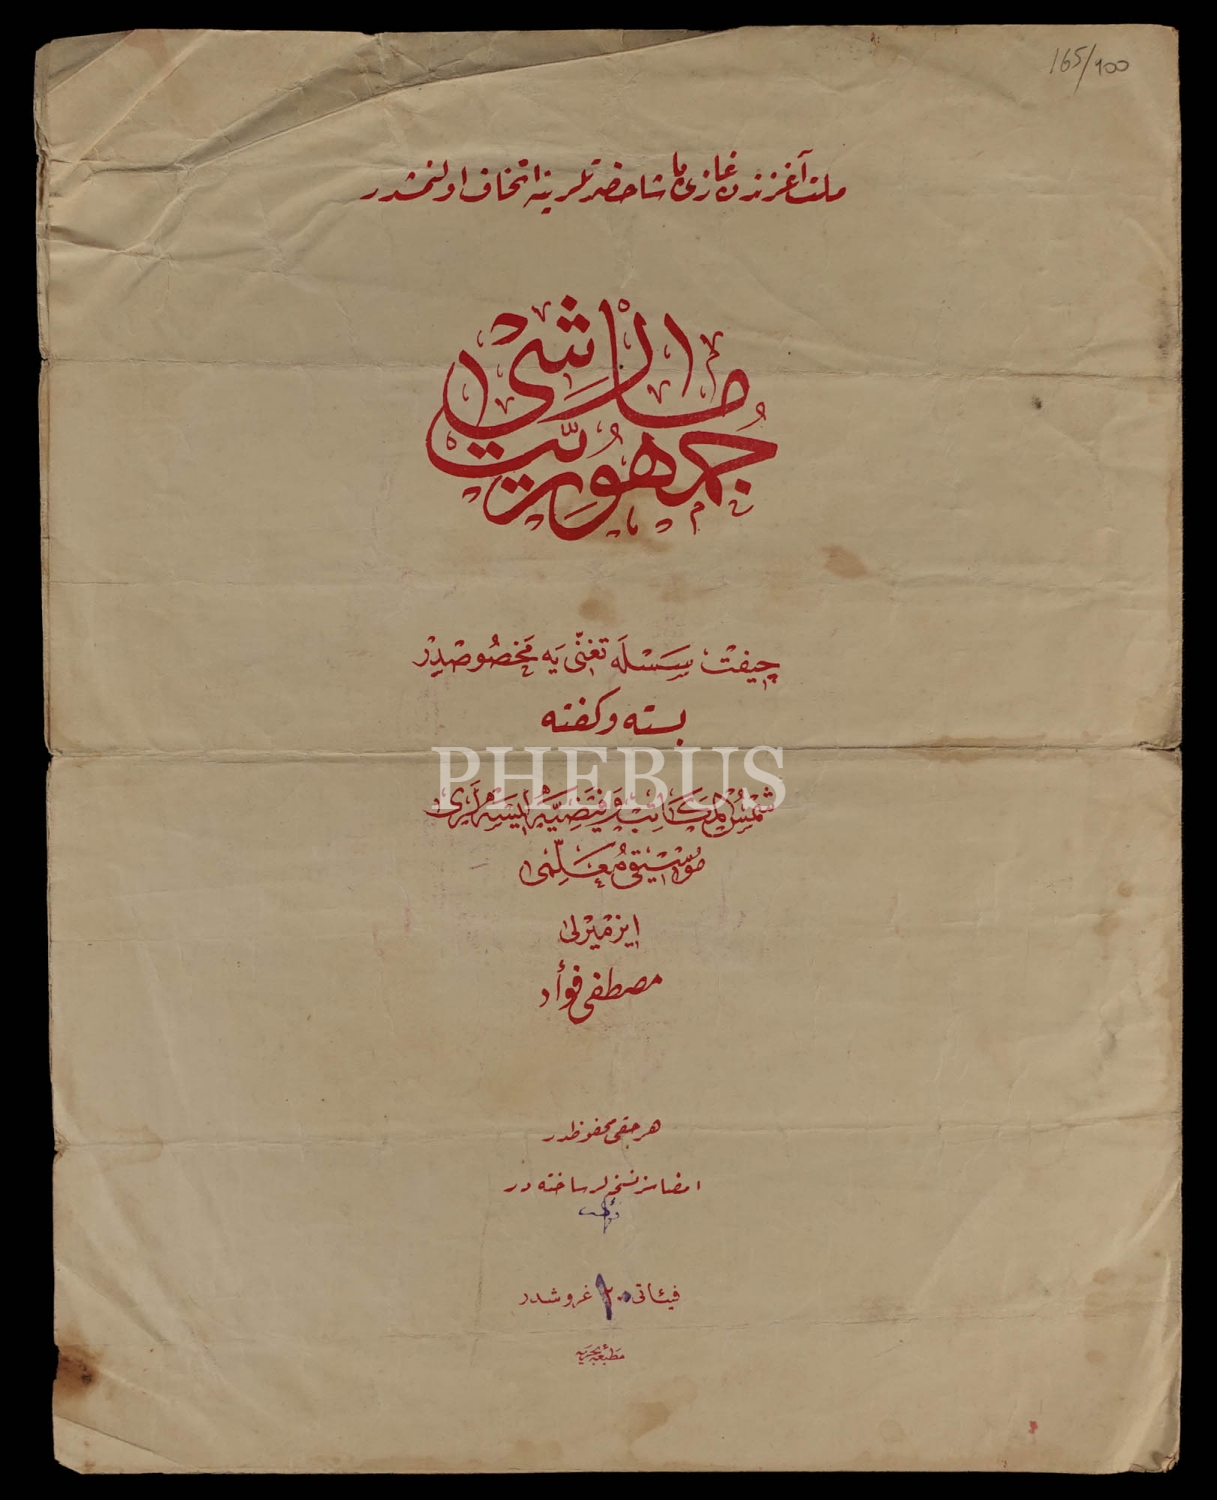 165/900
ملت آغزندن غازی پاشا حضرتلرینه اتحاف اولنمشدر
جمهوریت مارشی
چیفت سسله تغنی یه مخصوصدر
بسته و کفته
PHEBUS
شمس المکاتب و فیضیه لیسه لری
موسیقی معلمی
ازمیرلی
مصطفی فؤاد
هر حقی محفوظدر
امضاسز نسخه لر ساخته در
فیئاتی ٢٠ غروشدر
مطبعه بحریه